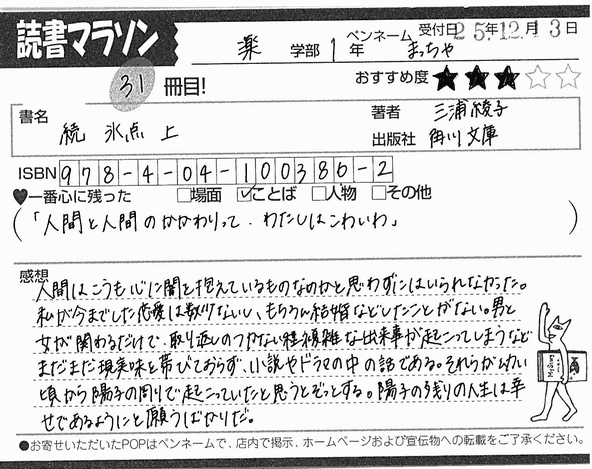 読書マラソン
薬 学部 1 年 ペンネーム まっちゃ 受付日 25年12月13日
31 冊目! おすすめ度 ★★★☆☆
書名 続 氷点 上
著者 三浦綾子
出版社 角川文庫
ISBN 978-4-04-100386-2
♥一番心に残った □場面 ☑ことば □人物 □その他
(「人間と人間のかかわりって、わたしはこわいわ」)
感想
人間はこうも心に闇を抱えているものなのかと思わずにはいられなかった。
私が今までした恋愛は数少ないし、もちろん結婚などしたことがない。男と
女が関わるだけで、取り返しのつかない程複雑な出来事が起こってしまうなど
まだまだ現実味を帯びておらず、小説やドラマの中の話である。それらが幼い
頃から陽子の周りで起こっていたと思うとぞっとする。陽子の残りの人生は幸
せであるようにと願うばかりだ。
●お寄せいただいたPOPはペンネームで、店内で掲示、ホームページおよび宣伝物への転載をご了承ください。